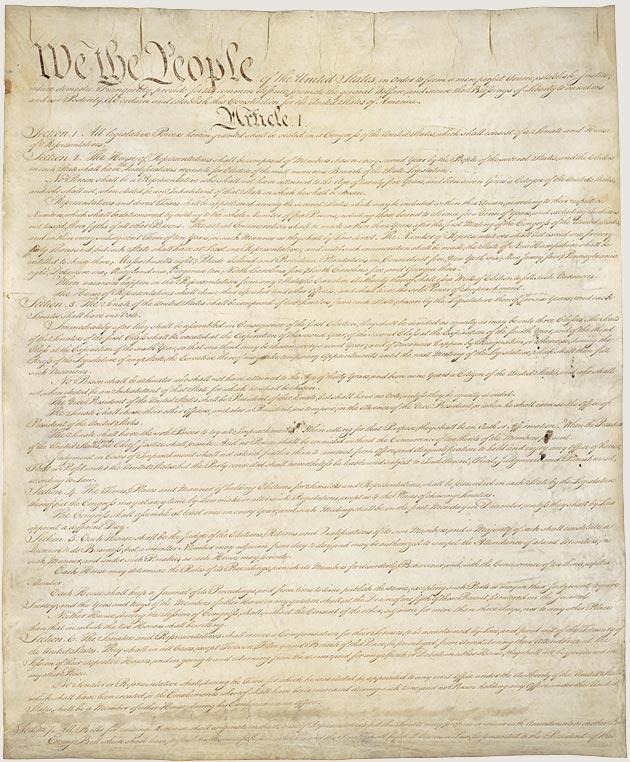 We the People of the United States, in Order to form a more perfect Union, establish Justice,
insure domestic Tranquility, provide for the common defence, promote the general Welfare, and secure the Blessings of Liberty to ourselves
and our Posterity, do ordain and establish this Constitution for the United States of America.
Article. I.
Section. 1. All legislative Powers herein granted shall be vested in a Congress of the United States, which shall consist of a Senate and House
of Representatives.
Section. 2. The House of Representatives shall be composed of Members chosen every second Year by the People of the several States, and the Electors
in each State shall have the Qualifications requisite for Electors of the most numerous Branch of the State Legislature.
No Person shall be a Representative who shall not have attained to the Age of twenty five Years, and been seven Years a Citizen of the United States,
and who shall not, when elected, be an Inhabitant of that State in which he shall be chosen.
Representatives and direct Taxes shall be apportioned among the several States which may be included within this Union, according to their respective
Numbers, which shall be determined by adding to the whole Number of free Persons, including those bound to Service for a Term of Years, and excluding Indians
not taxed, three fifths of all other Persons.
When vacancies happen in the Representation from any State, the Executive Authority
The House of Representatives shall chuse their Speaker and other Officers; and shall have the sole Power of Impeachment.
Section. 3. The Senate of the United States shall be composed of two Senators from each State, chosen by the Legislature thereof, for six Years; and each
Senator shall have one Vote.
Immediately after they shall be assembled in Consequence of the first Election, they shall be divided as equally as may be into three Classes.
No Person shall be a Senator who shall not have attained to the Age of thirty Years, and been nine Years a Citizen of the United States, and who shall
not, when elected, be an Inhabitant of that State for which he shall be chosen.
The Vice President of the United States shall be President of the Senate, but shall have no Vote, unless they be equally divided.
The Senate shall chuse their other Officers, and also a President pro tempore, in the Absence of the Vice President, or when he shall exercise the Office of
President of the United States.
The Senate shall have the sole Power to try all Impeachments. When sitting for that Purpose, they shall be on Oath or Affirmation. When the President
of the United States the Chief Justice shall preside: And no Person shall be convicted without the Concurrence of two thirds of the Members present.
Judgment in Cases of Impeachment shall not extend further than to removal from Office, and disqualification to hold and enjoy any Office of honor,
Trust or Profit under the United States: but the Party convicted shall nevertheless be liable and subject to Indictment, Trial, Judgment and Punishment,
according to Law.
Section. 4. The Times, Places and Manner of holding Elections for Senators and Representatives, shall be prescribed in each State by the Legislature
thereof; but the Congress may at any time by Law make or alter such Regulations, except as to the Places of chusing Senators.
The Congress shall assemble at least once in every Year, and such Meeting shall be on the first Monday in December, unless they shall by Law
appoint a different Day.
Section. 5. Each House shall be the Judge of the Elections, Returns and Qualifications of its own Members, and a Majority of each shall constitute a
Quorum to do Business; but a smaller Number may adjourn from day to day, and may be authorized to compel the Attendance of absent Members, in
such Manner, and under such Penalties as each House may provide.
Each House may determine the Rules of its Proceedings, punish its Members for disorderly Behaviour, and, with the Concurrence of two thirds, expel a
Member.
Each House shall keep a Journal of its Proceedings, and from time to time publish the same, excepting such Parts as may in their Judgment require
Secrecy; and the Yeas and Nays of the Members of either House on any question shall, at the Desire of one fifth of those Present, be entered on the Journal.
Neither House, during the Session of Congress, shall, without the Consent of the other, adjourn for more than three days, nor to any other Place
than that in which the two Houses shall be sitting.
Section. 6. The Senators and Representatives shall receive a Compensation for their Services, to be ascertained by Law, and paid out of the Treasury of
the United States. They shall in all Cases, except Treason, Felony and Breach of the Peace, be privileged from Arrest during their Attendance at the
Session of their respective Houses, and in going to and returning from the same; and for any Speech or Debate in either House, they shall not be questioned in
any other Place.
No Senator or Representative shall, during the Time for which he was elected, be appointed to any civil Office under the Authority of the United States,
which shall have been created, or the Emoluments whereof shall have been encreased during such time; and no Person holding any Office under the United
States, shall be a Member of either House during his Continuance in Office.
Section. 7. All Bills for raising Revenue shall originate in the House of Representatives; but the Senate may propose or concur with Amendments as on other Bills.
Every Bill which shall have